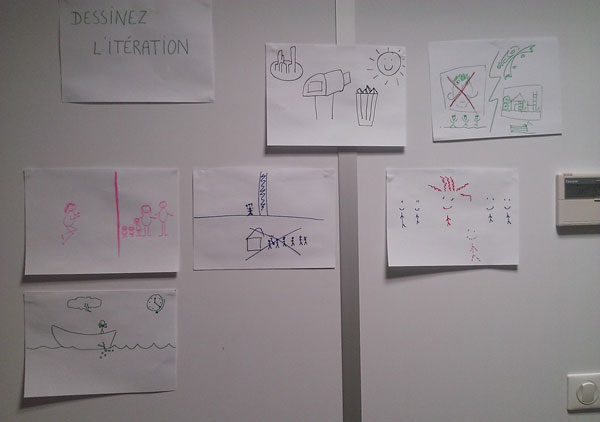 DESSINEZ
L'ITÉRATION